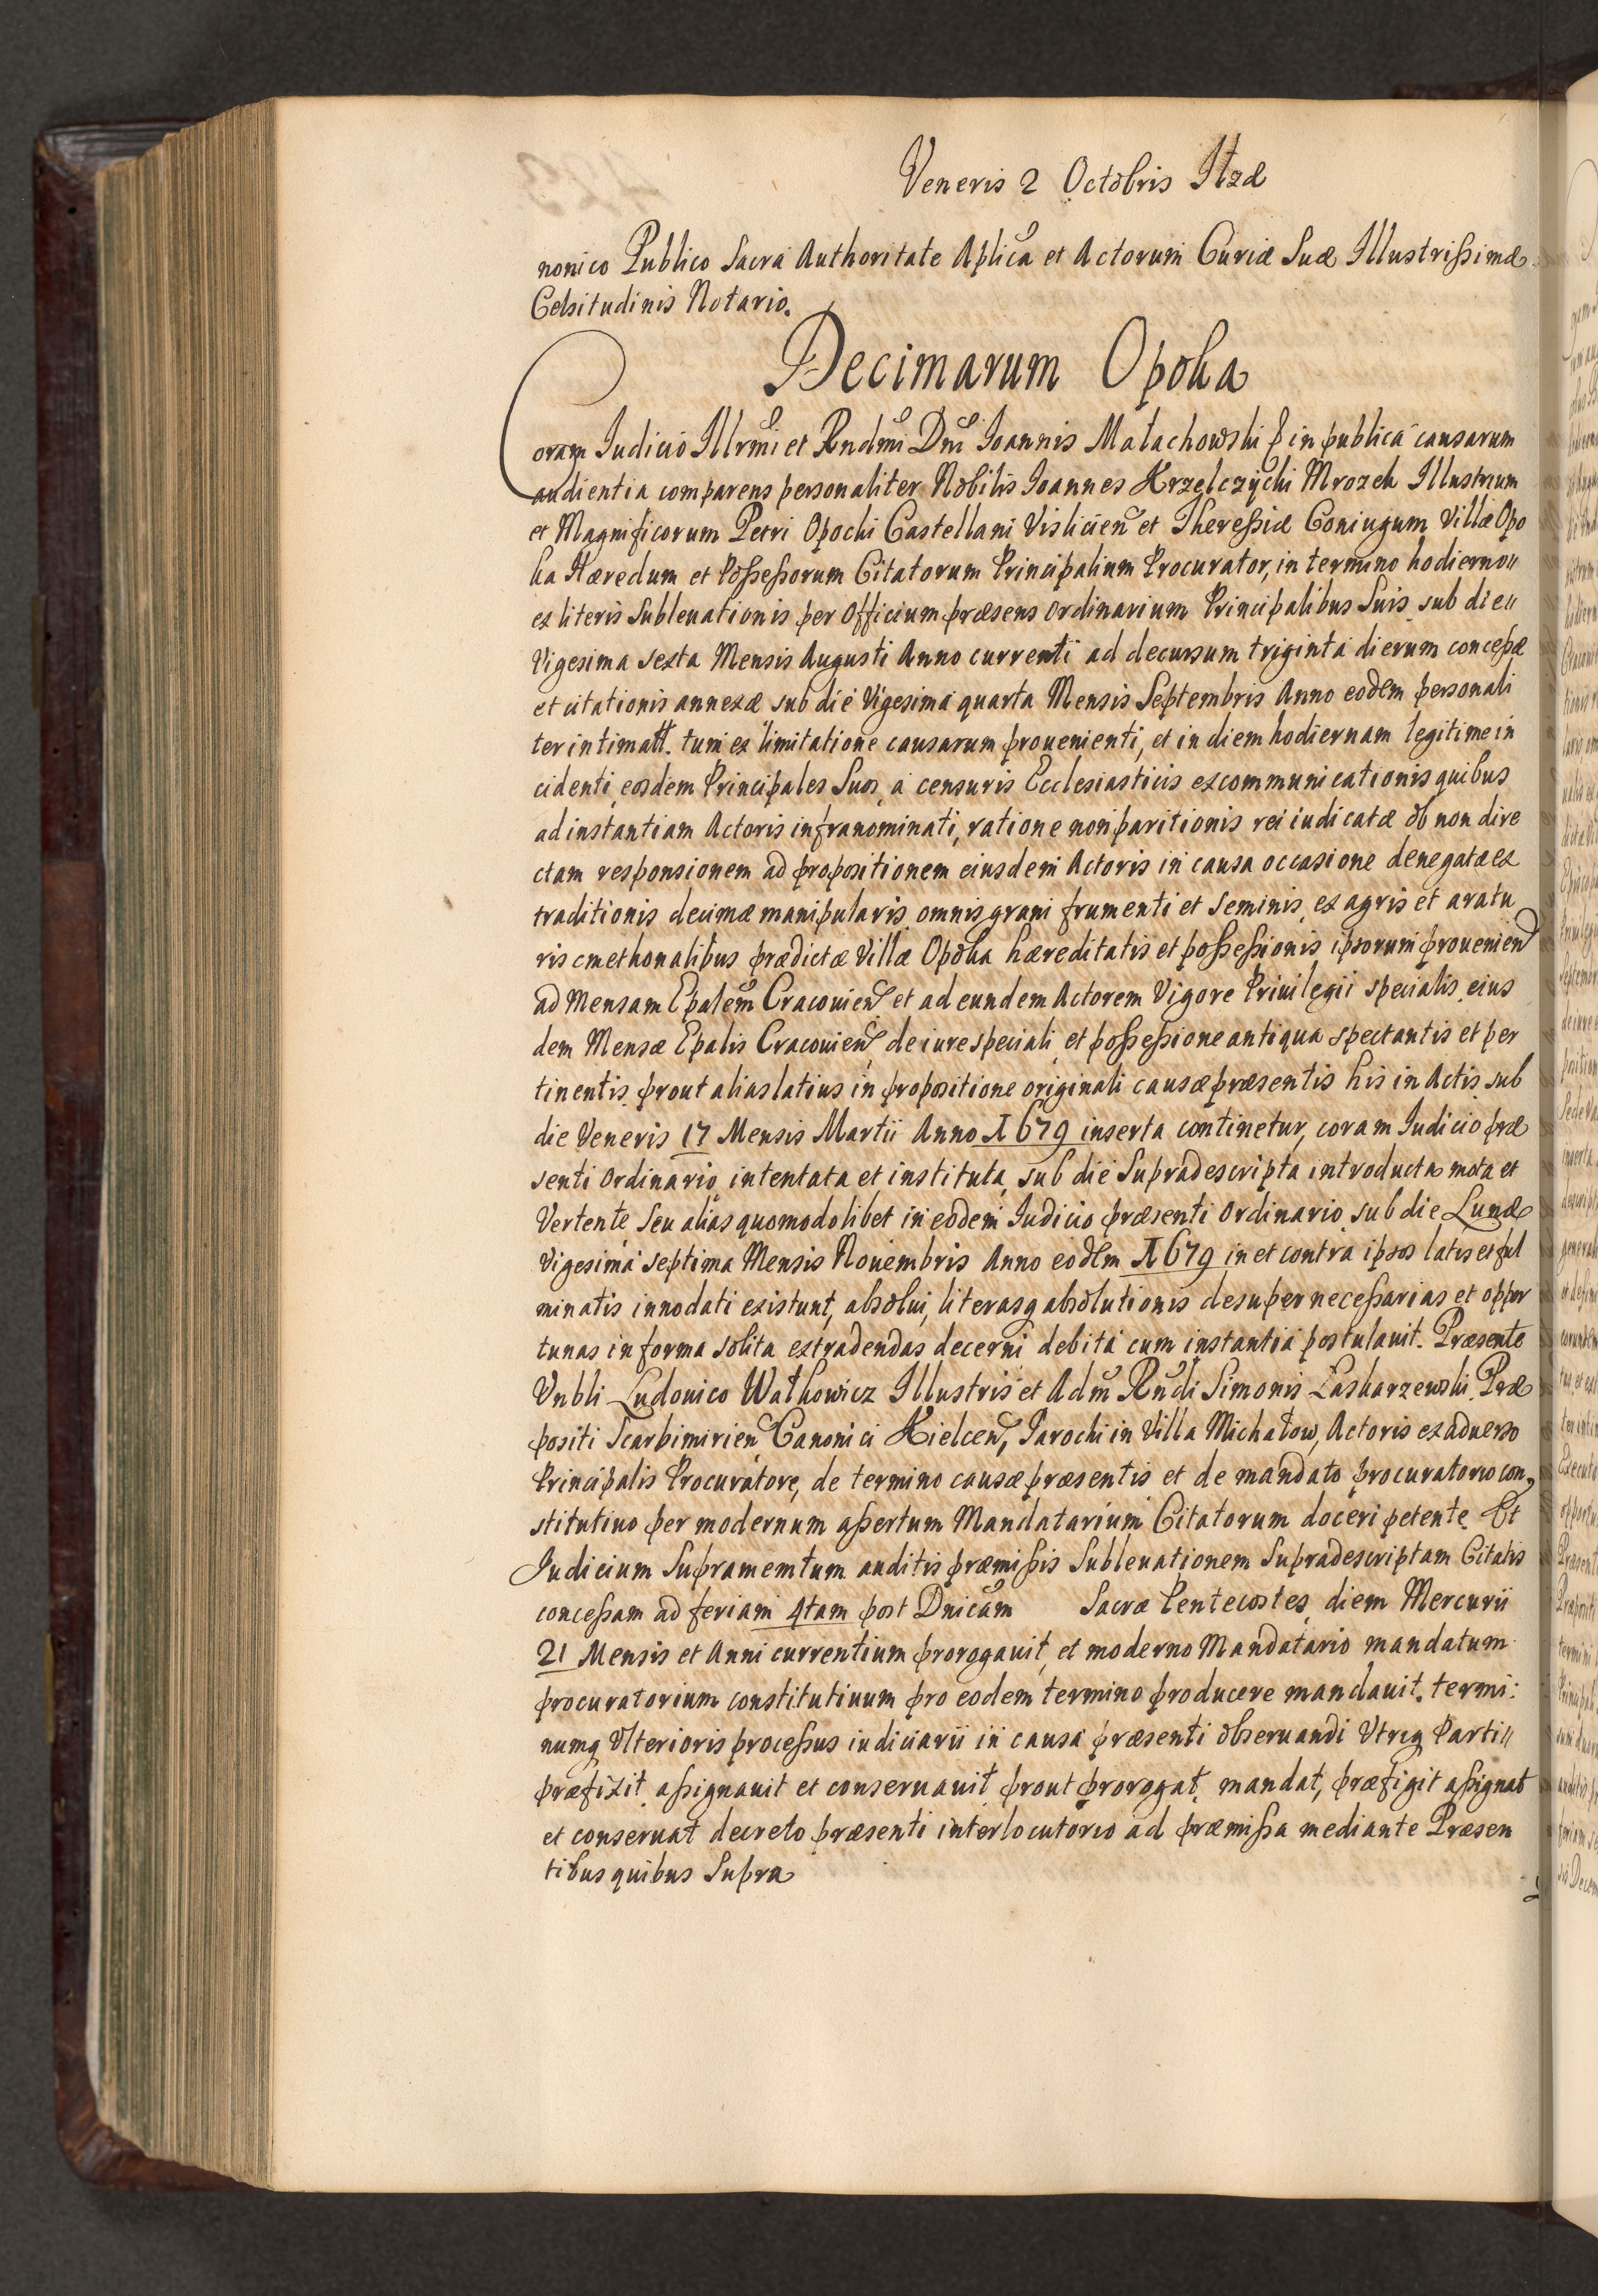 Veneris 2 Octobris
nonico Publico Sacra Authoritate Aplica et Actorum Curiæ Suæ Illustrissimæ
Celsitudinis Notario.
Decimarum Opoka
Coram Iudicio Illrmi et Rndmi Dni Ioannis Małachowski in publica causarum
audientia comparens personaliter Nobilis Ioannes Krzelczycki Mrozek Illustrium
et Magnificorum Petri Opocki Castellani Vislicien et Theressiæ Coniugum Villæ Opo
ka Hæredum et Possessorum Citatorum Principalium Procurator, in termino hodierno
ex literis Subleuationis per Officium præsens Ordinarium Principalibus Suis sub die
Vigesima sexta Mensis Augusti Anno currenti ad decursum triginta dierum concessæ
et citationis annexæ sub die Vigesima quarta Mensis Septembris Anno eodem personali
ter intimatt. tum ex limitatione causarum prouenienti, et in diem hodiernam legitime in
cidenti, eosdem Principales Suos, a censuris Ecclesiasticis excommunicationis quibus
ad instantiam Actoris infranominati, ratione non paritionis rei iudicatæ ob non dire
ctam responsionem ad propositionem eiusdem Actoris in causa occasione denegatæ ex
traditionis decimæ manipularis omnis grani frumenti et seminis, ex agris et aratu
ris cmethonalibus prædictæ Villæ Opoka hæreditatis et possessionis ipsorum prouenien
ad Mensam Epalem Cracouien et ad eundem Actorem Vigore Priuilegii specialis eius
dem Mensæ Epalis Cracouien de iure speciali et possessione antiqua spectantis et per
tinentis prout alias latius in propositione originali causæ præsentis his in Actis sub
die Veneris 17 Mensis Martii Anno 1679 inserta continetur, coram Iudicio præ
senti Ordinario intentata et instituta, sub die Supradescripta introducta mota et
Vertente, seu alias quomodolibet in eodem Iudicio præsenti Ordinario sub die Lunæ
Vigesima septima Mensis Nouembris Anno eodem 1679 in et contra ipsos latis et ful
minatis innodati existunt, absolui, literasq absolutionis desuper necessarias et oppor
tunas in forma solita extradendas decerni debita cum instantia postulauit. Præsente
Vnbli Ludouico Wałkowicz Illustris et Adm Rndi Simonis Laskarzewski Præ
positi Scarbimirien Canonici Kielcen, Parochi in Villa Michałow, Actoris ex aduerso
Principalis Procuratore, de termino causæ præsentis et de mandato procuratorio con
stitutiuo per modernum assertum Mandatarium Citatorum doceri petente. Et
Iudicium Supramemtum auditis præmissis Subleuationem Supradescriptam Citatis
concessam ad feriam 4tam post Dnicam Sacræ Pentecostes diem Mercurii
21 Mensis et Anni currentium prorogauit, et moderno Mandatario mandatum
procuratorium constitutiuum pro eodem termino producere mandauit. termi:
numq Vlterioris processus iudiciarii in causa præsenti obseruandi Vtriq Parti
præfixit assignauit et conseruauit prout prorogat, mandat, præfigit assignat
et conseruat decreto præsenti interlocutorio ad præmissa mediante Præsen
tibus quibus Supra